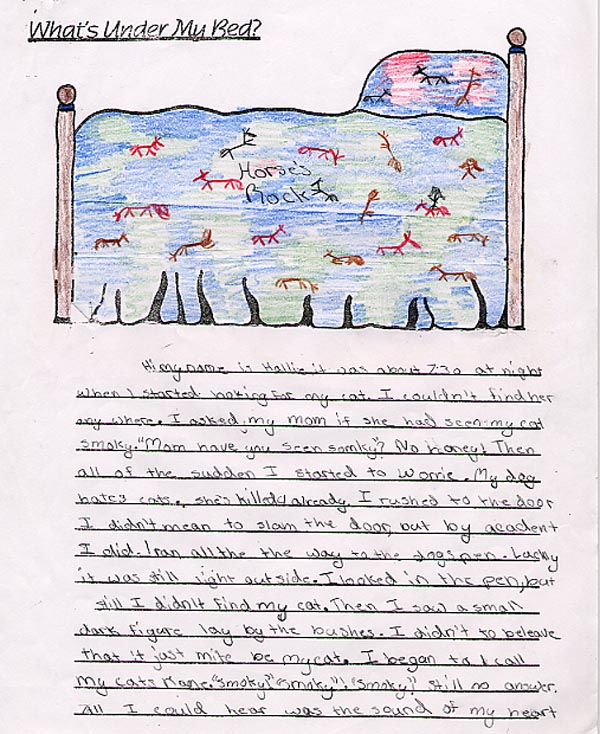 What's Under My Bed?
Horse's
Rock
Hi my name is Hallie it was about 7:30 at night
when I started looking for my cat. I couldn't find her
any where. I asked my mom if she had seen my cat
smoky. "Mom have you seen somky"? No honey! Then
all of the sudden I started to worrie. My dog
hates cats. she's killed already. I rushed to the door
I didn't mean to slam the door, but by acadent
I did. I ran all the the way to the dogs pen. Lucky
it was still light outside. I looked in the pen, but
still I didn't find my cat. Then I saw a small
dark figure lay by the bushes. I didn't to beleave
that it just mite be my cat. I began to call
my cats name. "smoky!" "smoky"! "smoky!" still no answer.
All I could hear was the sound of my heart